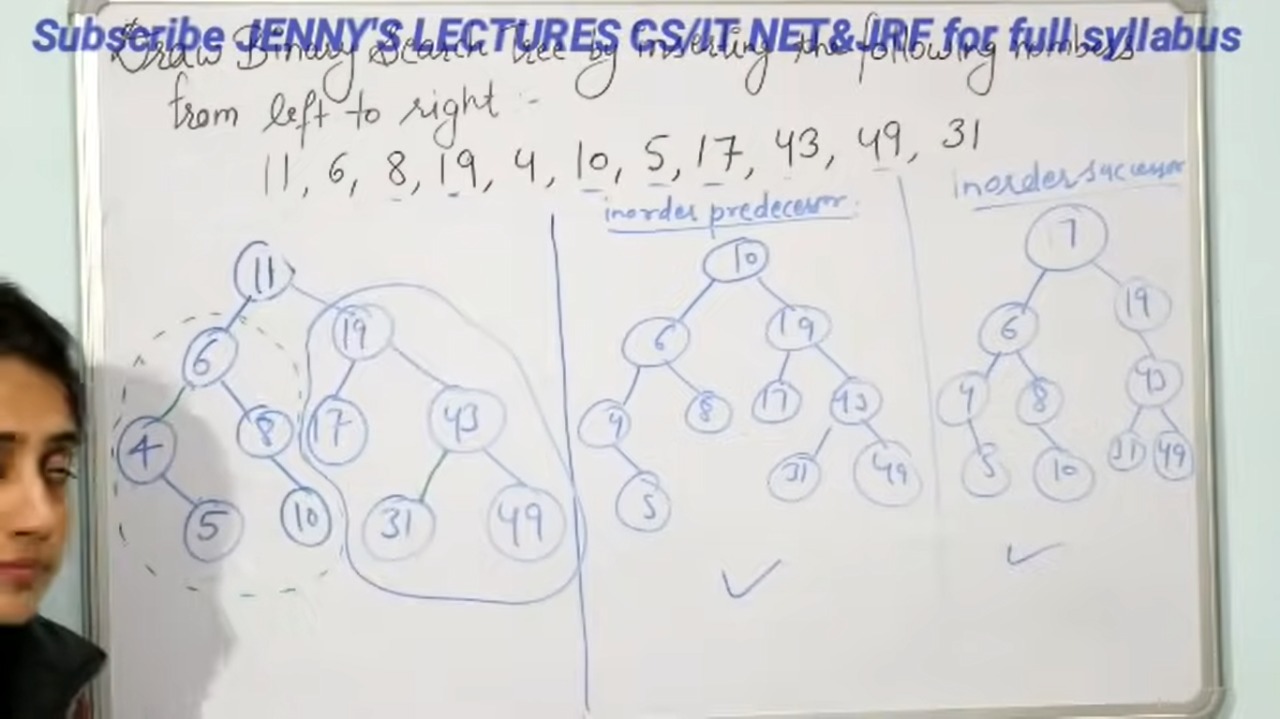 Subscribe JENNY'S LECTURES CS/IT NET&JRF for full syllabus
Draw Binary Search Tree by inserting the following numbers
from left to right :-
11, 6, 8, 19, 4, 10, 5, 17, 43, 49, 31
inorder predecessor.
inorder successor
11
6
19
4
8
17
43
5
10
31
49
10
6
19
4
8
17
43
5
31
49
17
6
19
4
8
43
5
10
31
49